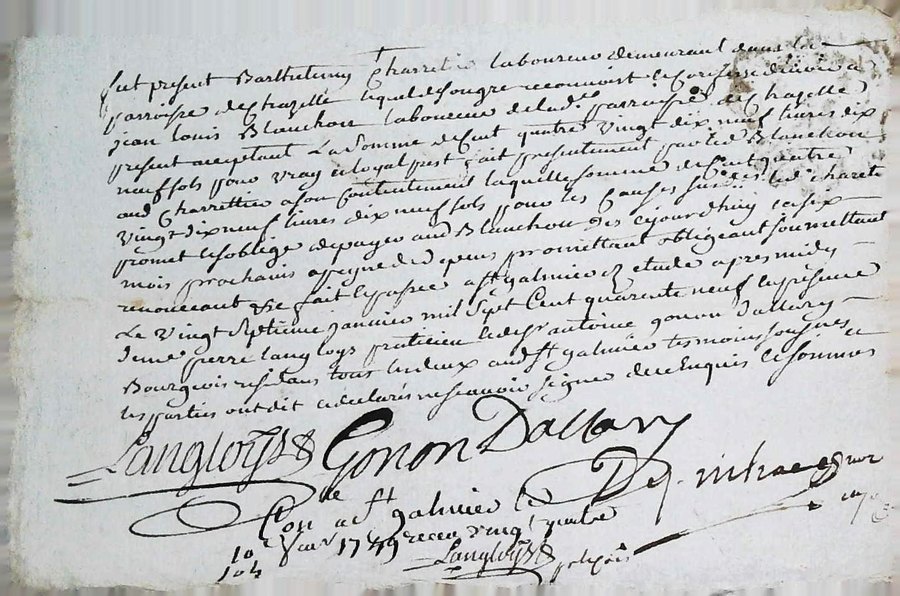 fut present Barthelemy Charretie laboureur demeurant dans la
parroisse de Chazelle lequel de son gre reconnoit et confesse devoir a
jean Louis Blanchon laboureur de lad.e parroisse de Chazelle
present acceptant La Somme de Cent quatre vingt dix neuf livres dix
neuf sols pour vray et loyal prest fait presentement par led Blanchon
aud Charrettie a son Contentement laquelle somme de Cent quatre
vingt dix neuf livres dix neuf sols pour les Causes led. Charetie
promet et s'oblige de payer aud Blanchon des ce jourdhuy en six
mois prochains a peyne de depens promettant obligeant soumettant
renonceant &c fait et passé a st galmier etude apres midy
Le vingt Septieme janvier mil Sept Cent quarente neuf en presence
de me pierre langloys praticien et de sr antoine gonon Dallary
Bourgeois residans tous les deux aud st galmier temoins soussignes et
les parties ont dit et declarés ne scavoir signer de ce Enquis et sommés
Langloÿs Gonon Dallary
Con a st galmier le
10e 1749 receu vingt quatre
10 d Langloÿs